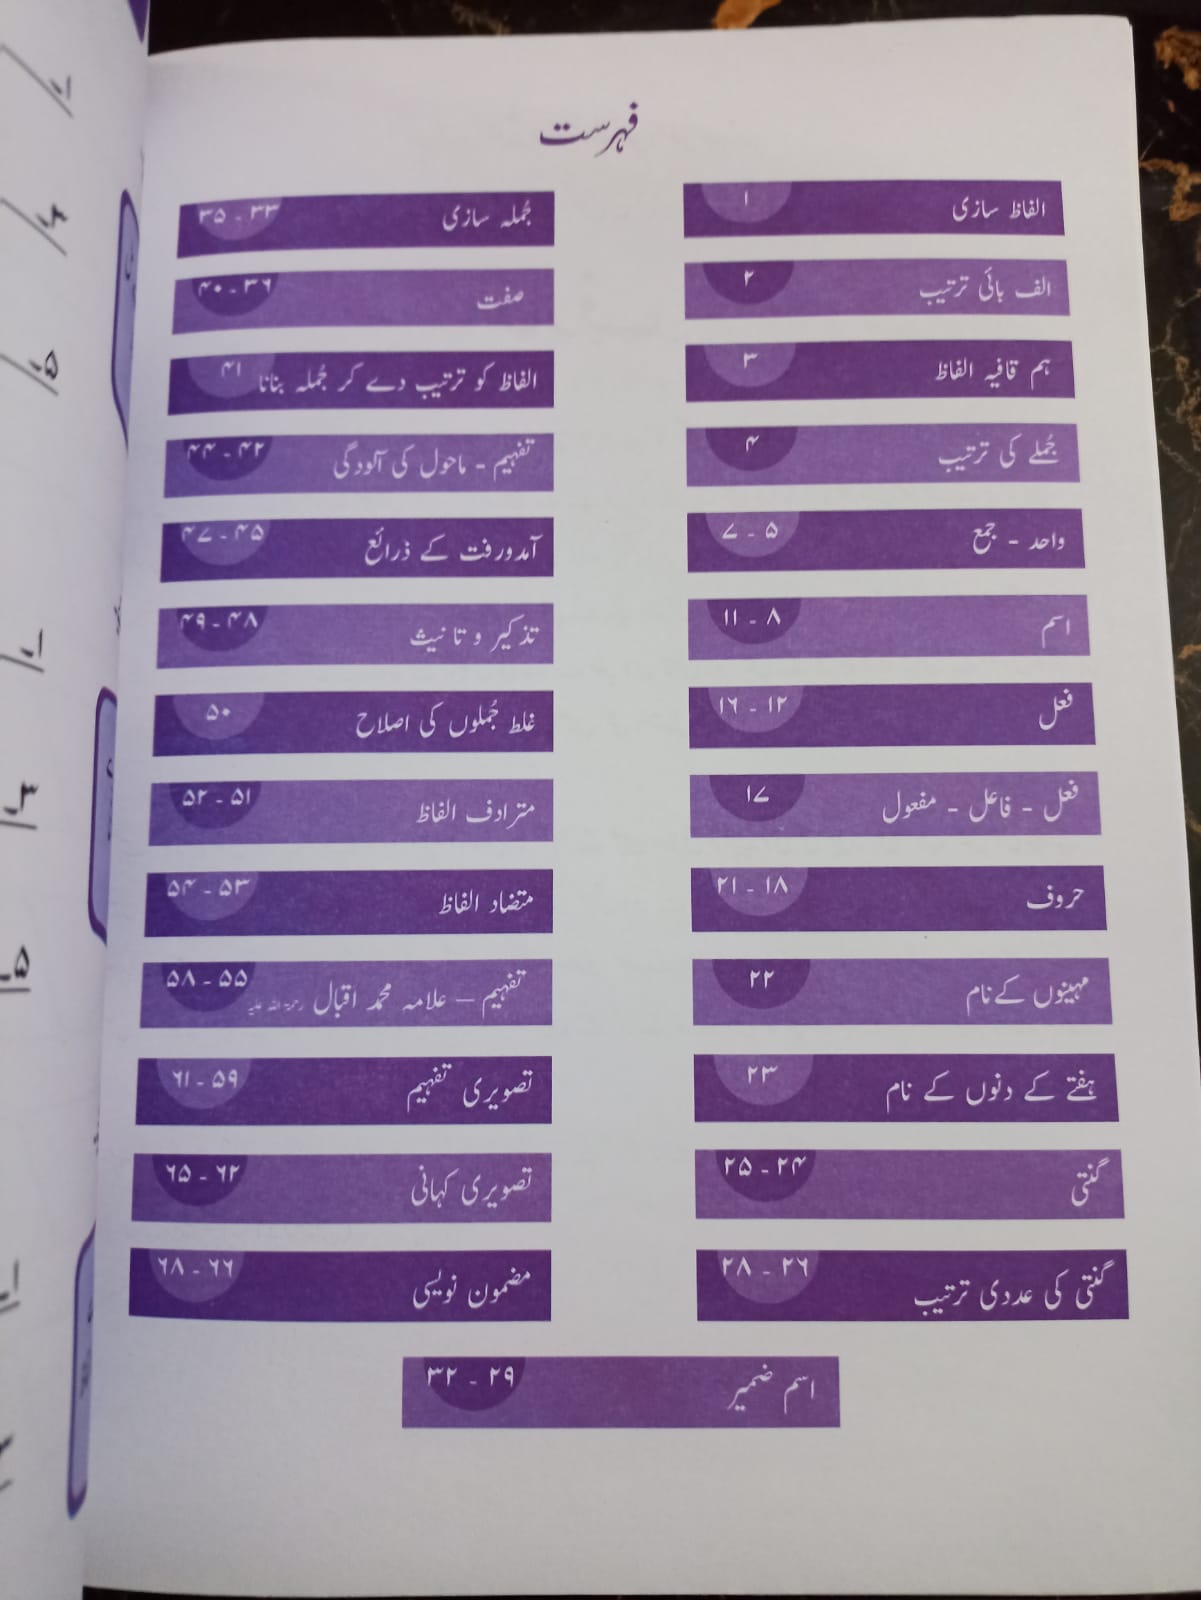 فہرست
الفاظ سازی ۱
الف بائی ترتیب ۲
ہم قافیہ الفاظ ۳
جُملے کی ترتیب ۴
واحد - جمع ۵ - ۷
اسم ۸ - ۱۱
فعل ۱۲ - ۱۶
فعل - فاعل - مفعول ۱۷
حروف ۱۸ - ۲۱
مہینوں کے نام ۲۲
ہفتے کے دنوں کے نام ۲۳
گنتی ۲۴ - ۲۵
گنتی کی عددی ترتیب ۲۶ - ۲۸
اسم ضمیر ۲۹ - ۳۲
جُملہ سازی ۳۳ - ۳۵
صفت ۳۶ - ۴۰
الفاظ کو ترتیب دے کر جُملہ بنانا ۴۱
تفہیم - ماحول کی آلودگی ۴۲ - ۴۴
آمدورفت کے ذرائع ۴۵ - ۴۷
تذکیر و تانیث ۴۸ - ۴۹
غلط جُملوں کی اصلاح ۵۰
مترادف الفاظ ۵۱ - ۵۲
متضاد الفاظ ۵۳ - ۵۴
تفہیم – علامہ محمد اقبال رحمۃ اللہ علیہ ۵۵ - ۵۸
تصویری تفہیم ۵۹ - ۶۱
تصویری کہانی ۶۲ - ۶۵
مضمون نویسی ۶۶ - ۶۸
۱-
۳-
۵-
۱-
۳-
۵-
۱-